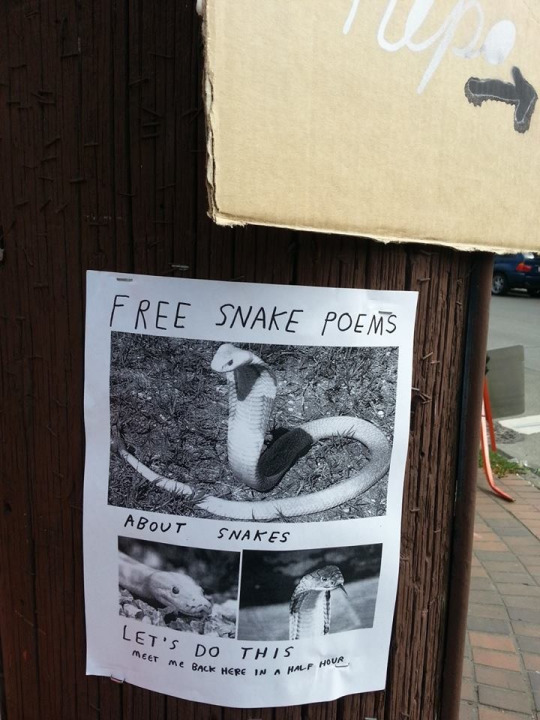 FREE SNAKE POEMS
ABOUT SNAKES
LET'S DO THIS
MEET ME BACK HERE IN A HALF HOUR